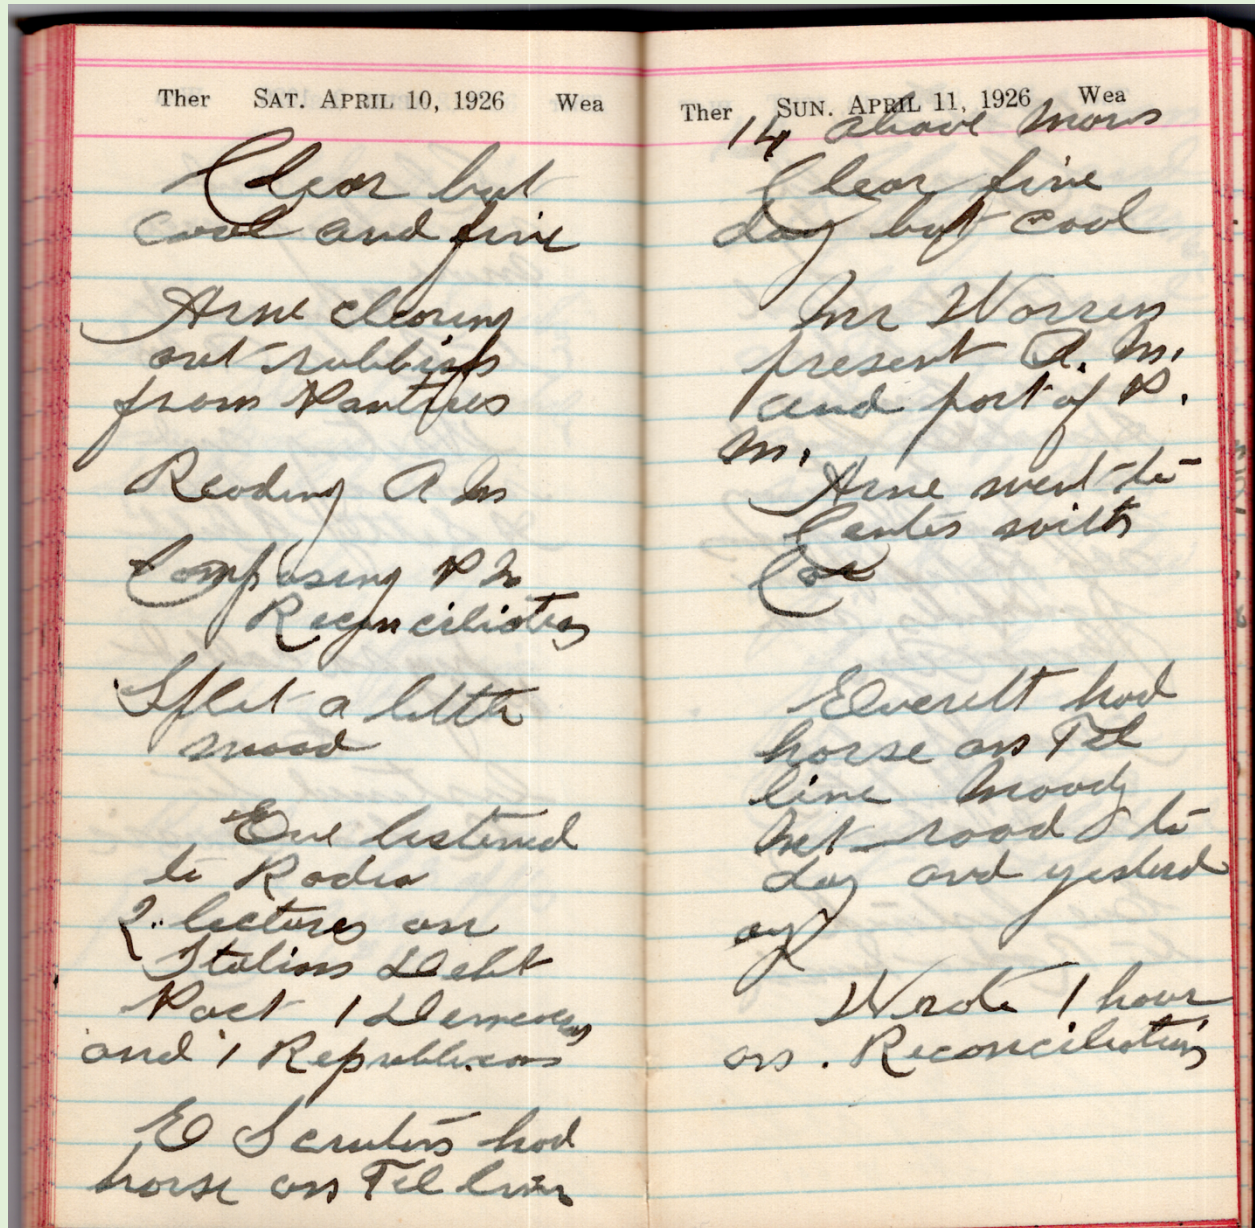 Ther SAT. APRIL 10, 1926 Wea
Clear but
cool and fine
Arne clearing
out rubbish
from Pantries
Reading A M
Composing P M
Reconciliation
Split a little
wood
Eve listened
to Radio
2 lectures on
Italian Debt
Pact 1 Democrat
and 1 Republican
E Scruton had
horse on Tel line
Ther SUN. APRIL 11, 1926 Wea
14 above Morn
Clear fine
day but cool
Mr Warren
present A. M.
and part of P.
M.
Arne went to
Center with
Car
Everett had
horse on Tel
line Moody
Mt road to
day and yesterd
ay
Wrote 1 hour
on . Reconciliation